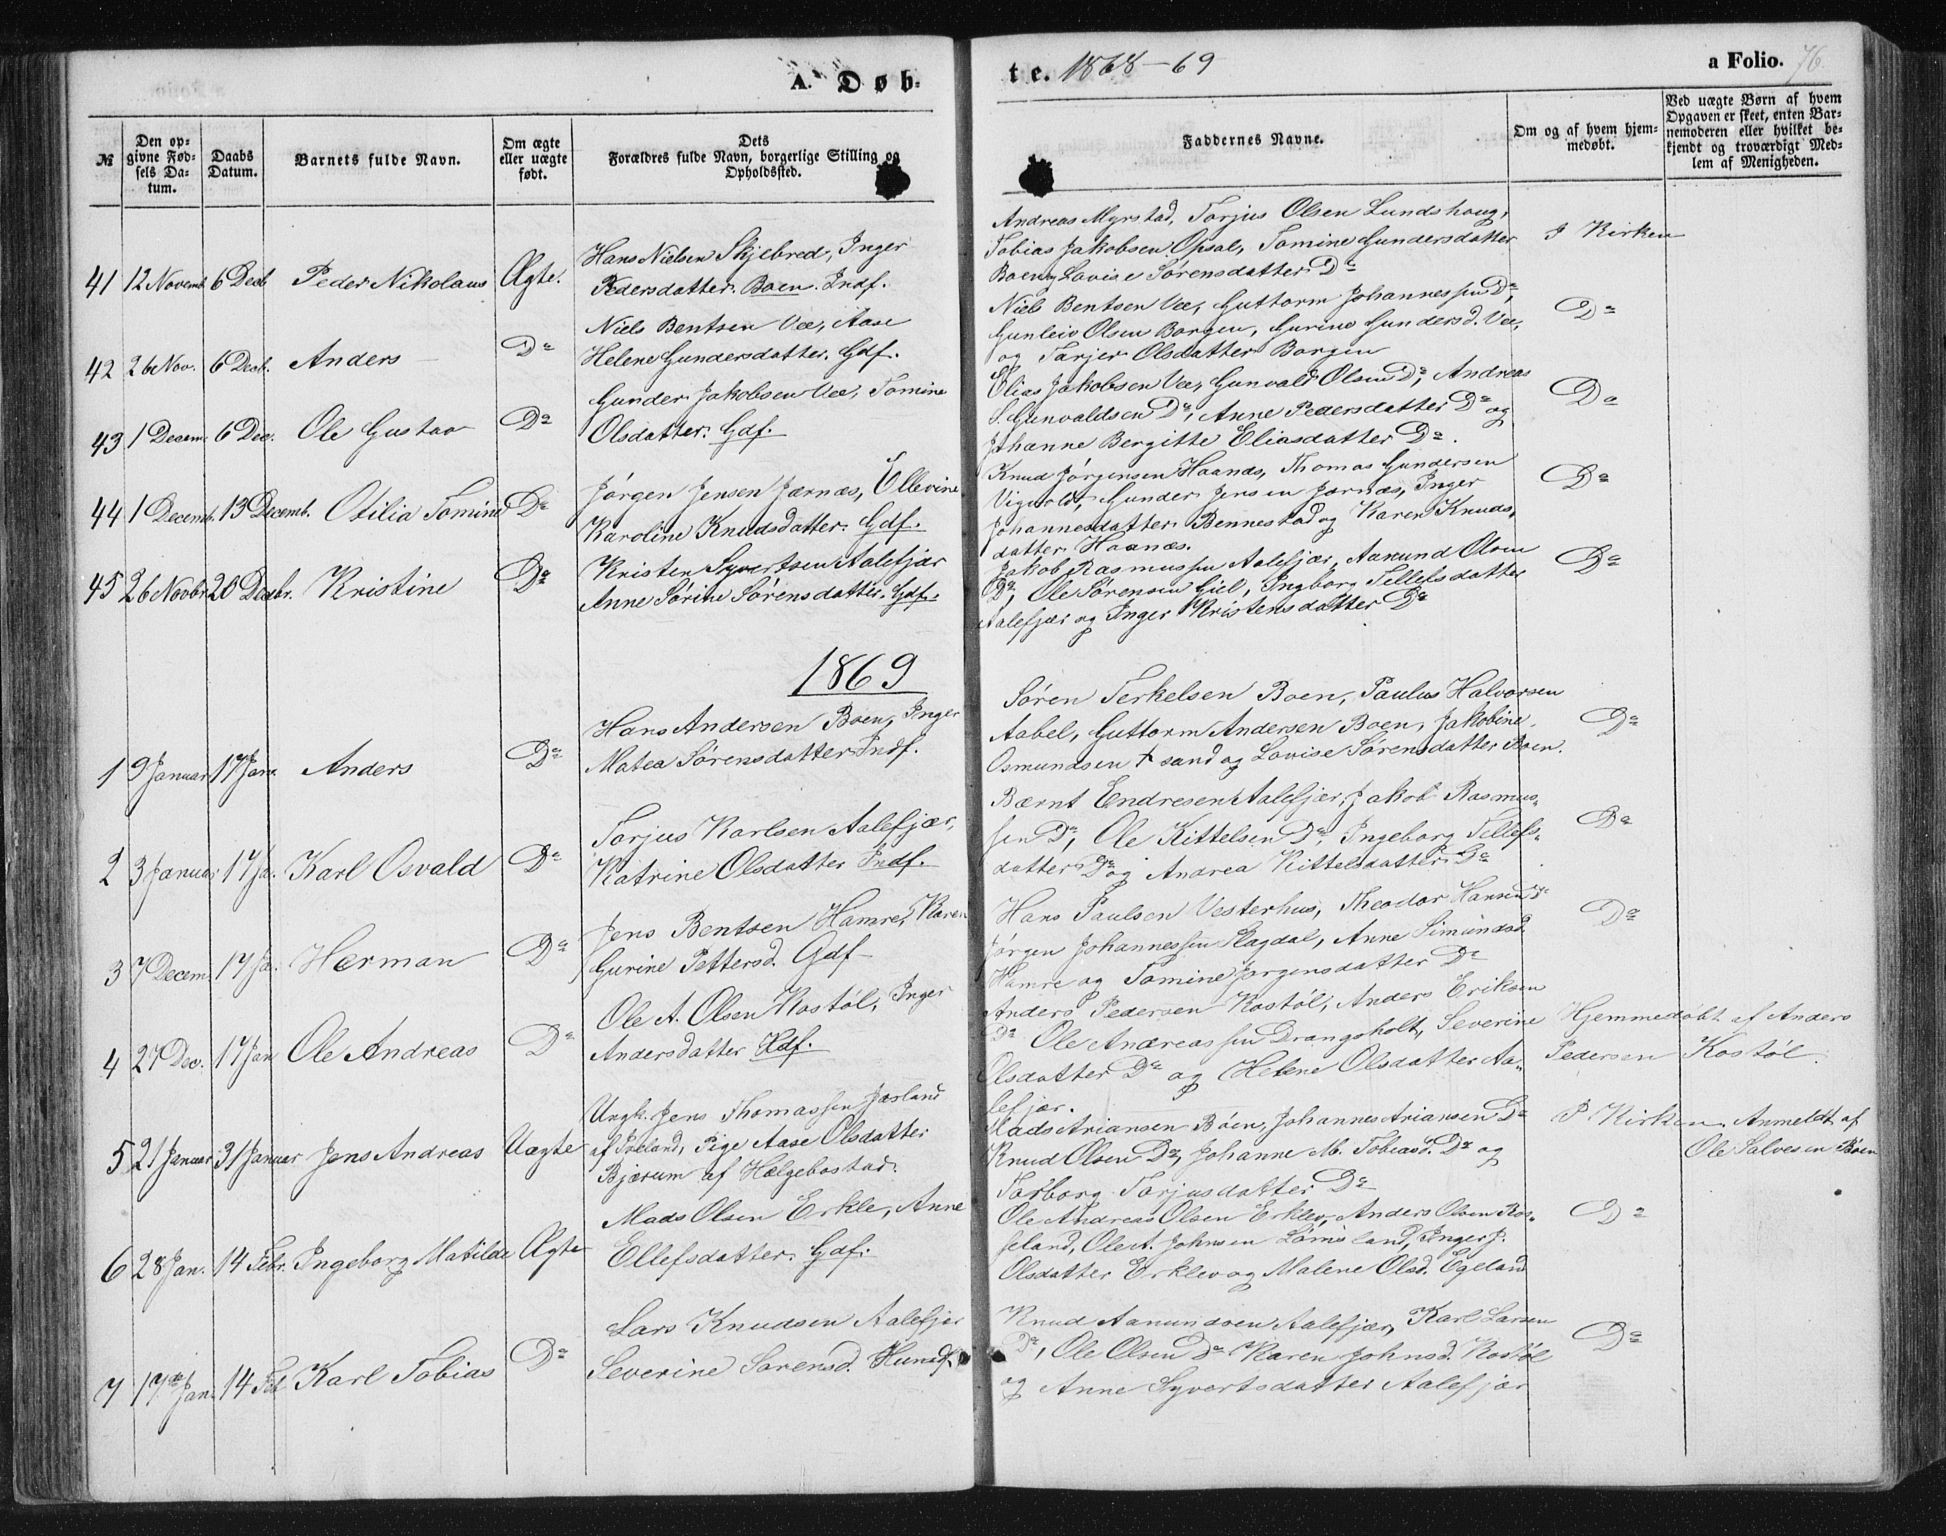 A. Døb-
te. 1868-69
a Folio. 76
№
Den opgivne Fødsels Datum.
Daabs Datum.
Barnets fulde Navn.
Om ægte eller uægte født.
Dets Forældres fulde Navn, borgerlige Stilling og Opholdssted.
Faddernes Navne.
Om og af hvem hjemmedøbt.
Ved uægte Børn af hvem Opgaven er skeet, enten Barnemoderen eller hvilket bekjendt og troværdigt Medlem af Menigheden.
41 12 Novemb. 6 Decb Peder Nikolaus Ægte.
Hans Nielsen Skjebred, Inger
Pedersdatter. Boen. Indf.
Andreas Myrstad, Torjus Olsen Lundshoug,
Tobias Jakobsen Opsal, Tomine Gundersdatter
Boen og Lovise Sørensdatter Do
I Kirken
42 26 Nov. 6 Decb. Anders Do
Niels Bentsen Vee, Aase
Helene Gundersdatter. Gdf.
Niels Bentsen Vee, Guttorm Johannessen Do,
Gunleiv Olsen Borgen, Gurine Gundersd. Vee,
og Tarjer Olsdatter Borgen
Do
43 1 Decem. 6 Dec. Ole Gustav Do
Gunder Jakobsen Vee, Tomine
Olsdatter. Gdf.
Elias Jakobsen Vee, Gunvald Olsen Do, Andreas
S. Gunvaldsen Do, Anne Pedersdatter Do og
Johanne Bergitte Eliasdatter Do.
Do
44 1 Decemb. 13 Decemb. Otilia Tomine Do
Jørgen Jensen Jærnæs, Ellevine
Karoline Knudsdatter. Gdf.
Knud Jørgensen Haanæs, Thomas Gundersen
Vigvold, Gunder Jensen Jærnæs, Inger
Johannesdatter Bennestad og Karen Knuds-
datter Haanæs.
Do
45 26 Novbr 20 Decbr. Kristine Do
Kristen Syvertsen Aalefjær
Anne Sørine Sørensdatter. Gdf.
Jakob Rasmussen Aalefjær, Aanund Olsen
Do, Ole Sørensen Giel, Ingborg Tellefsdatter
Aalefjær og Inger Kristensdatter Do
Do
1869
1 9 Januar 17 Jan. Anders Do
Hans Andersen Boen, Inger
Matea Sørensdatter Indf.
Søren Terkelsen Boen, Paulus Halvorsen
Aabel, Guttorm Andersen Boen, Jakobine
Osmundsen † sand og Lovise Sørensdatter Boen.
Do
2 3 Januar 17 Ja. Karl Osvald Do
Torjus Karlsen Aalefjær,
Katrine Olsdatter Indf.
Bærnt Endresen Aalefjær, Jakob Rasmus-
sen Do, Ole Kittelsen Do, Ingeborg Tellefs-
datter Do og Andrea Kittelsdatter Do
Do
3 7 Decem. 17 Ja. Herman Do
Jens Bentsen Hamre, Karen
Gurine Pettersd. Gdf
Hans Paulsen Vesterhus, Theodor Hansen Do
Jørgen Johannessen Slagdal, Anne Simonsd.
Hamre og Tomine Jørgensdatter Do
Do
4 27 Dec. 17 Jan Ole Andreas Do
Ole A. Olsen Kostøl, Inger
Andersdatter Hdf.
Anders Pedersen Kostøl, Anders Eriksen
Do Ole Andreassen Drangsholt, Severine
Olsdatter Do og Helene Olsdatter Aa-
lefjær.
Hjemmedøbt af Anders
Pedersen Kostøl.
5 21 Januar 31 Januar Jens Andreas Uægte
Ungk. Jens Thomassen Jorland
af Iveland, Pige Aase Olsdatter
Bjærum af Hælgebostad.
Mads Ariansen Boen, Johannes Ariansen Do
Knud Olsen Do, Johanne M. Tobiasd. Do og
Torborg Torjusdatter Do
I Kirken
Anmeldt af
Ole Salvesen Boen
6 28 Jan. 14 Febr. Ingeborg Matilde Ægte
Mads Olsen Erklev, Anne
Ellefsdatter. Gdf.
Ole Andreas Olsen Erklev, Anders Olsen Ros-
seland, Ole A. Johnsen Lømsland, Inger J.
Olsdatter Erklev og Malene Olsd. Egeland
Do
7 17de Jan. 14 Feb Karl Tobias Do
Lars Knudsen Aalefjær
Severine Sørensd. Husmdf.
Knud Aanundsen Aalefjær, Karl Larsen
Do, Ole Olsen Do Karen Johnsd. Kostøl
og Anne Syvertsdatter Aalefjær
Do